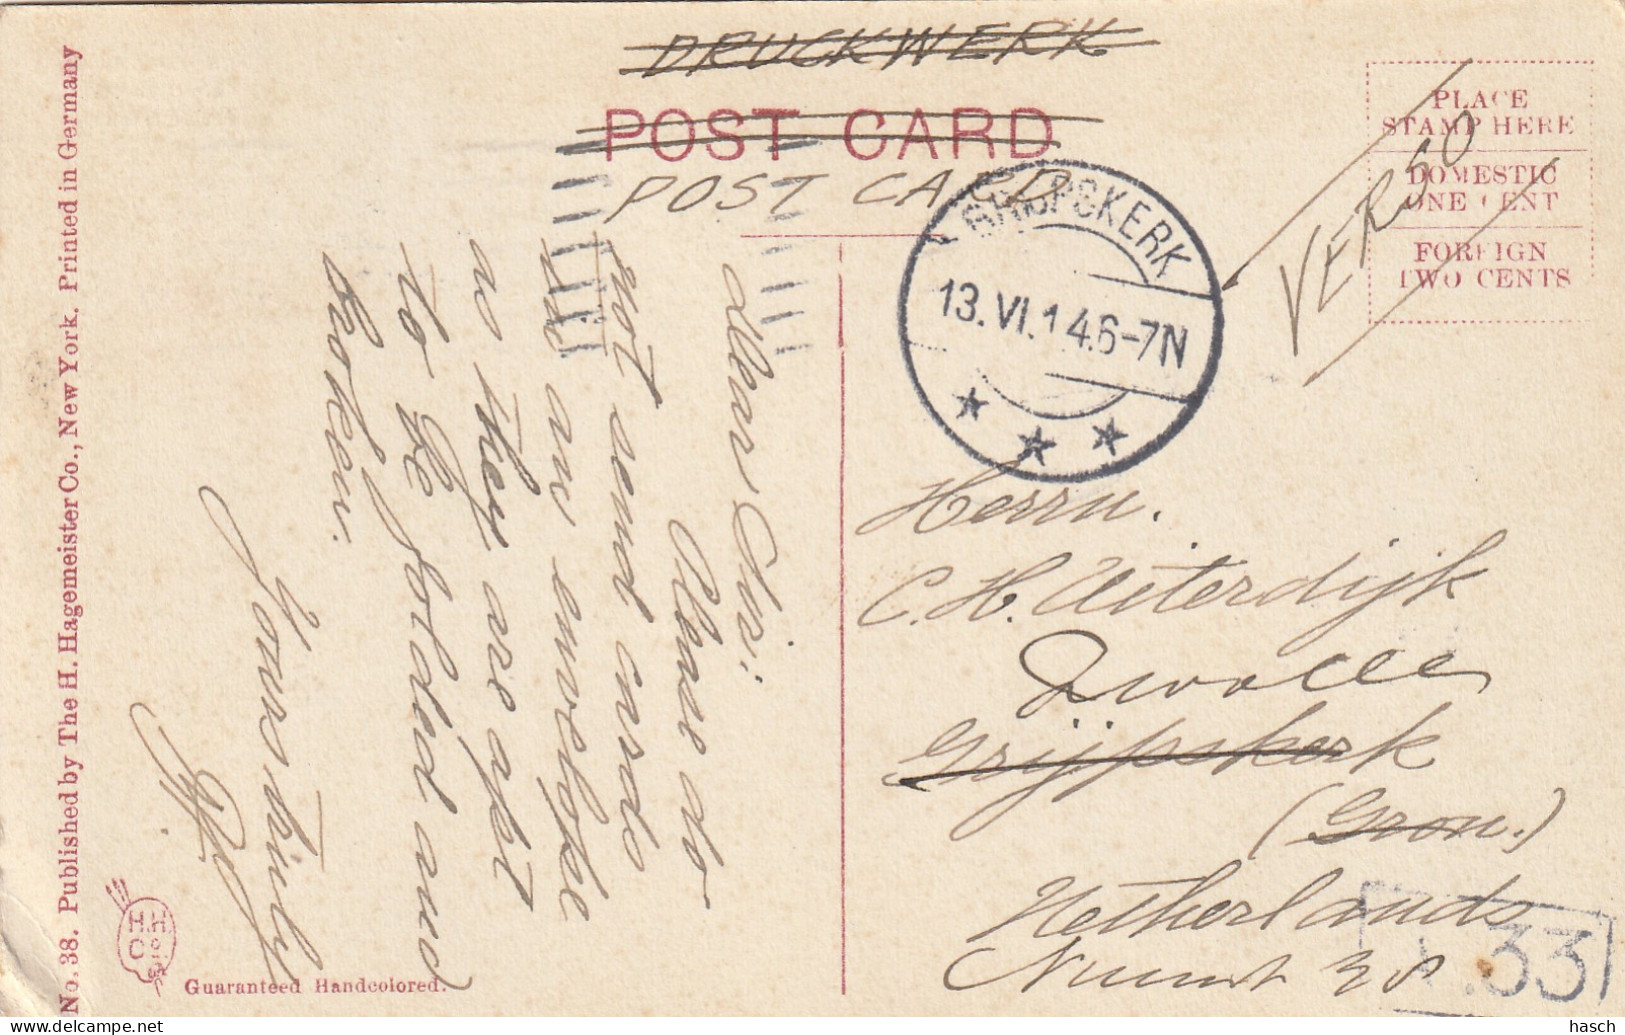 DRUCKWERK
POST CARD
POST CARD
PLACE
STAMP HERE
DOMESTIC
ONE CENT
FOREIGN
TWO CENTS
VERSO
GRIJPSKERK
13.VI.14.6-7N
Dear Sir:
Please do
not send cards
in an envelope
as they are apt
to be folded and
broken.
Yours truly
Herrn.
C. H. Uiterdijk
Zwolle
Grijpskerk
(Gron.)
Netherlands
33
No. 38. Published by The H. Hagemeister Co., New York. Printed in Germany
H.H.
Co.
Guaranteed Handcolored.
hasch